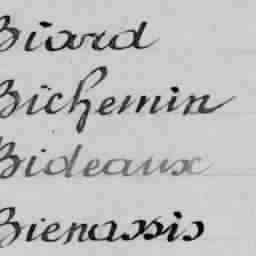 Biard
Bichemin
Bideaux
Bienassis